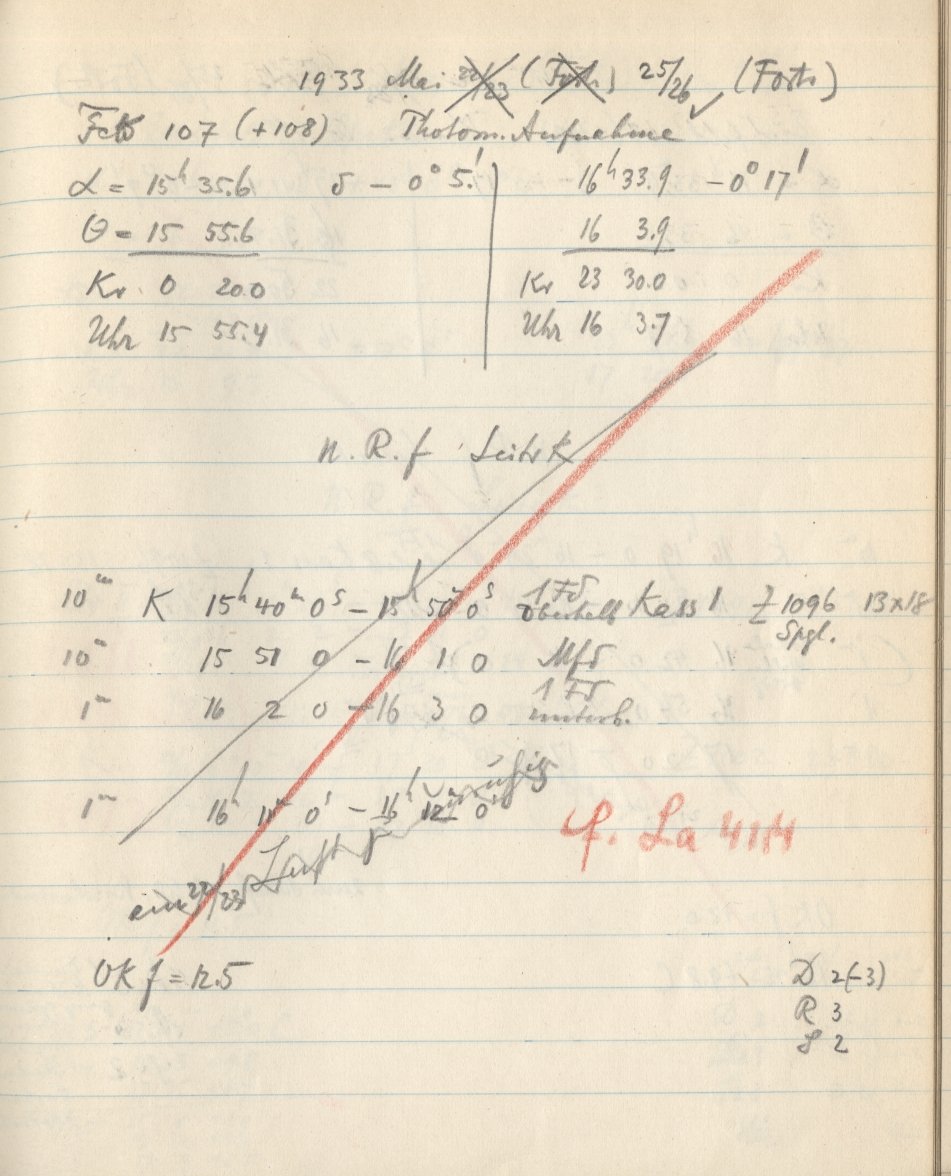 1933 Mai 22/23 (Forts) 25/26 ✓ (Forts)
Feld 107 (+108) Photom. Aufnahme
α = 15ʰ 35.6 δ - 0° 5.' 16ʰ 33.9 - 0° 17'
θ = 15 55.6 16 3.9
Kr. 0 20.0 Kr 23 30.0
Uhr 15 55.4 Uhr 16 3.7
n. R. f Leitrk
10ᵐ K 15ʰ 40ᵐ 0ˢ - 15ʰ 50ᵐ 0ˢ 1 Fd oberhalb Kass 1 Z 1096 13x18
Spgl.
10ᵐ 15 51 0 - 16 1 0 Mfd
1ᵐ 16 2 0 - 16 3 0 1 Fd unterh.
1ᵐ 16ʰ 11ᵐ 0ˢ - 16ʰ 12ᵐ 0ˢ
Luft
22/23
f. La 4114
OK f = 12.5
D 2(-3)
R 3
S 2